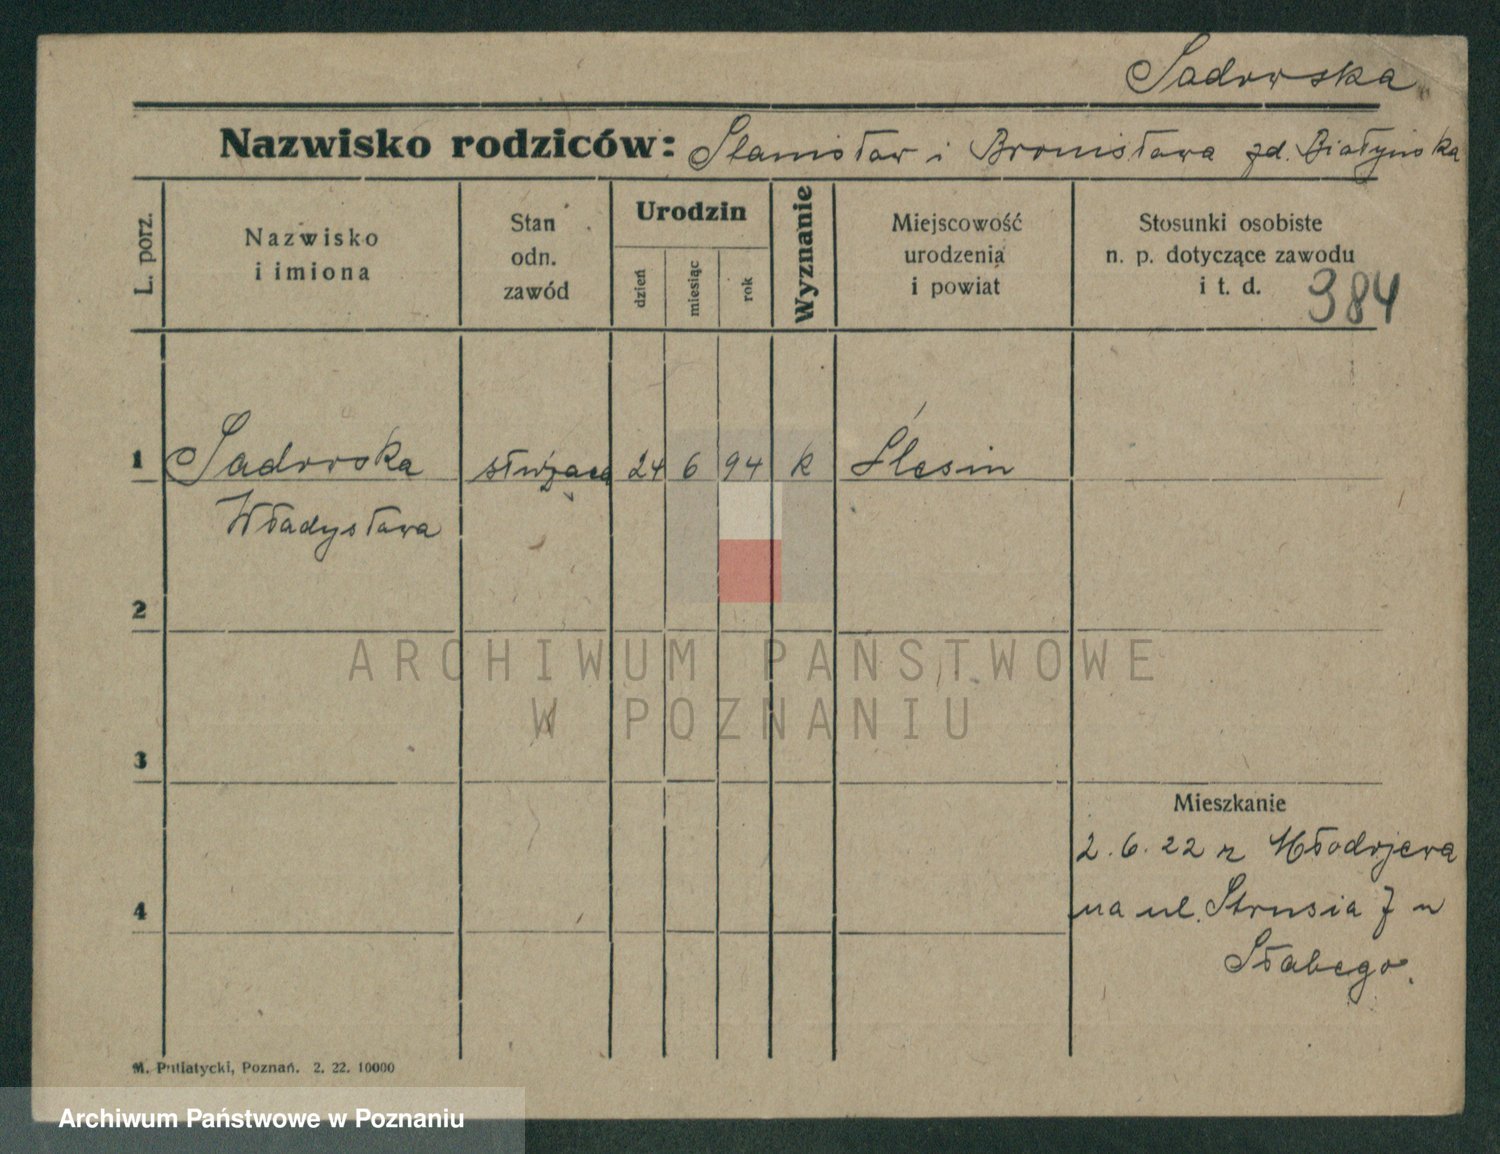 Sadowska
Nazwisko rodziców: Stanisław i Bronisława zd. Białyńska
L. porz.
Nazwisko
i imiona
Stan
odn.
zawód
Urodzin
dzień
miesiąc
rok
Wyznanie
Miejscowość
urodzenia
i powiat
Stosunki osobiste
n. p. dotyczące zawodu
i t. d.
384
1 Sadowska służąca 24 6 94 k Ślesin
Władysława
2
3
4
Mieszkanie
2. 6. 22 z Młodojewa
na ul. Strusia 7 u
Słabego.
M. Putiatycki, Poznań. 2. 22. 10000
ARCHIWUM PAŃSTWOWE
W POZNANIU
Archiwum Państwowe w Poznaniu